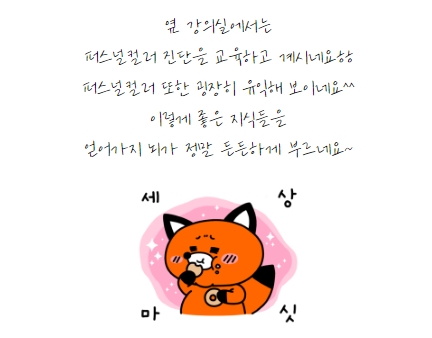 옆 강의실에서는
퍼스널컬러 진단을 교육하고 계시네요ㅎㅎ
퍼스널컬러 또한 굉장히 유익해 보이네요^^
이렇게 좋은 지식들을
얻어가지 뇌가 정말 든든하게 부르네요~
세 상
마 싯